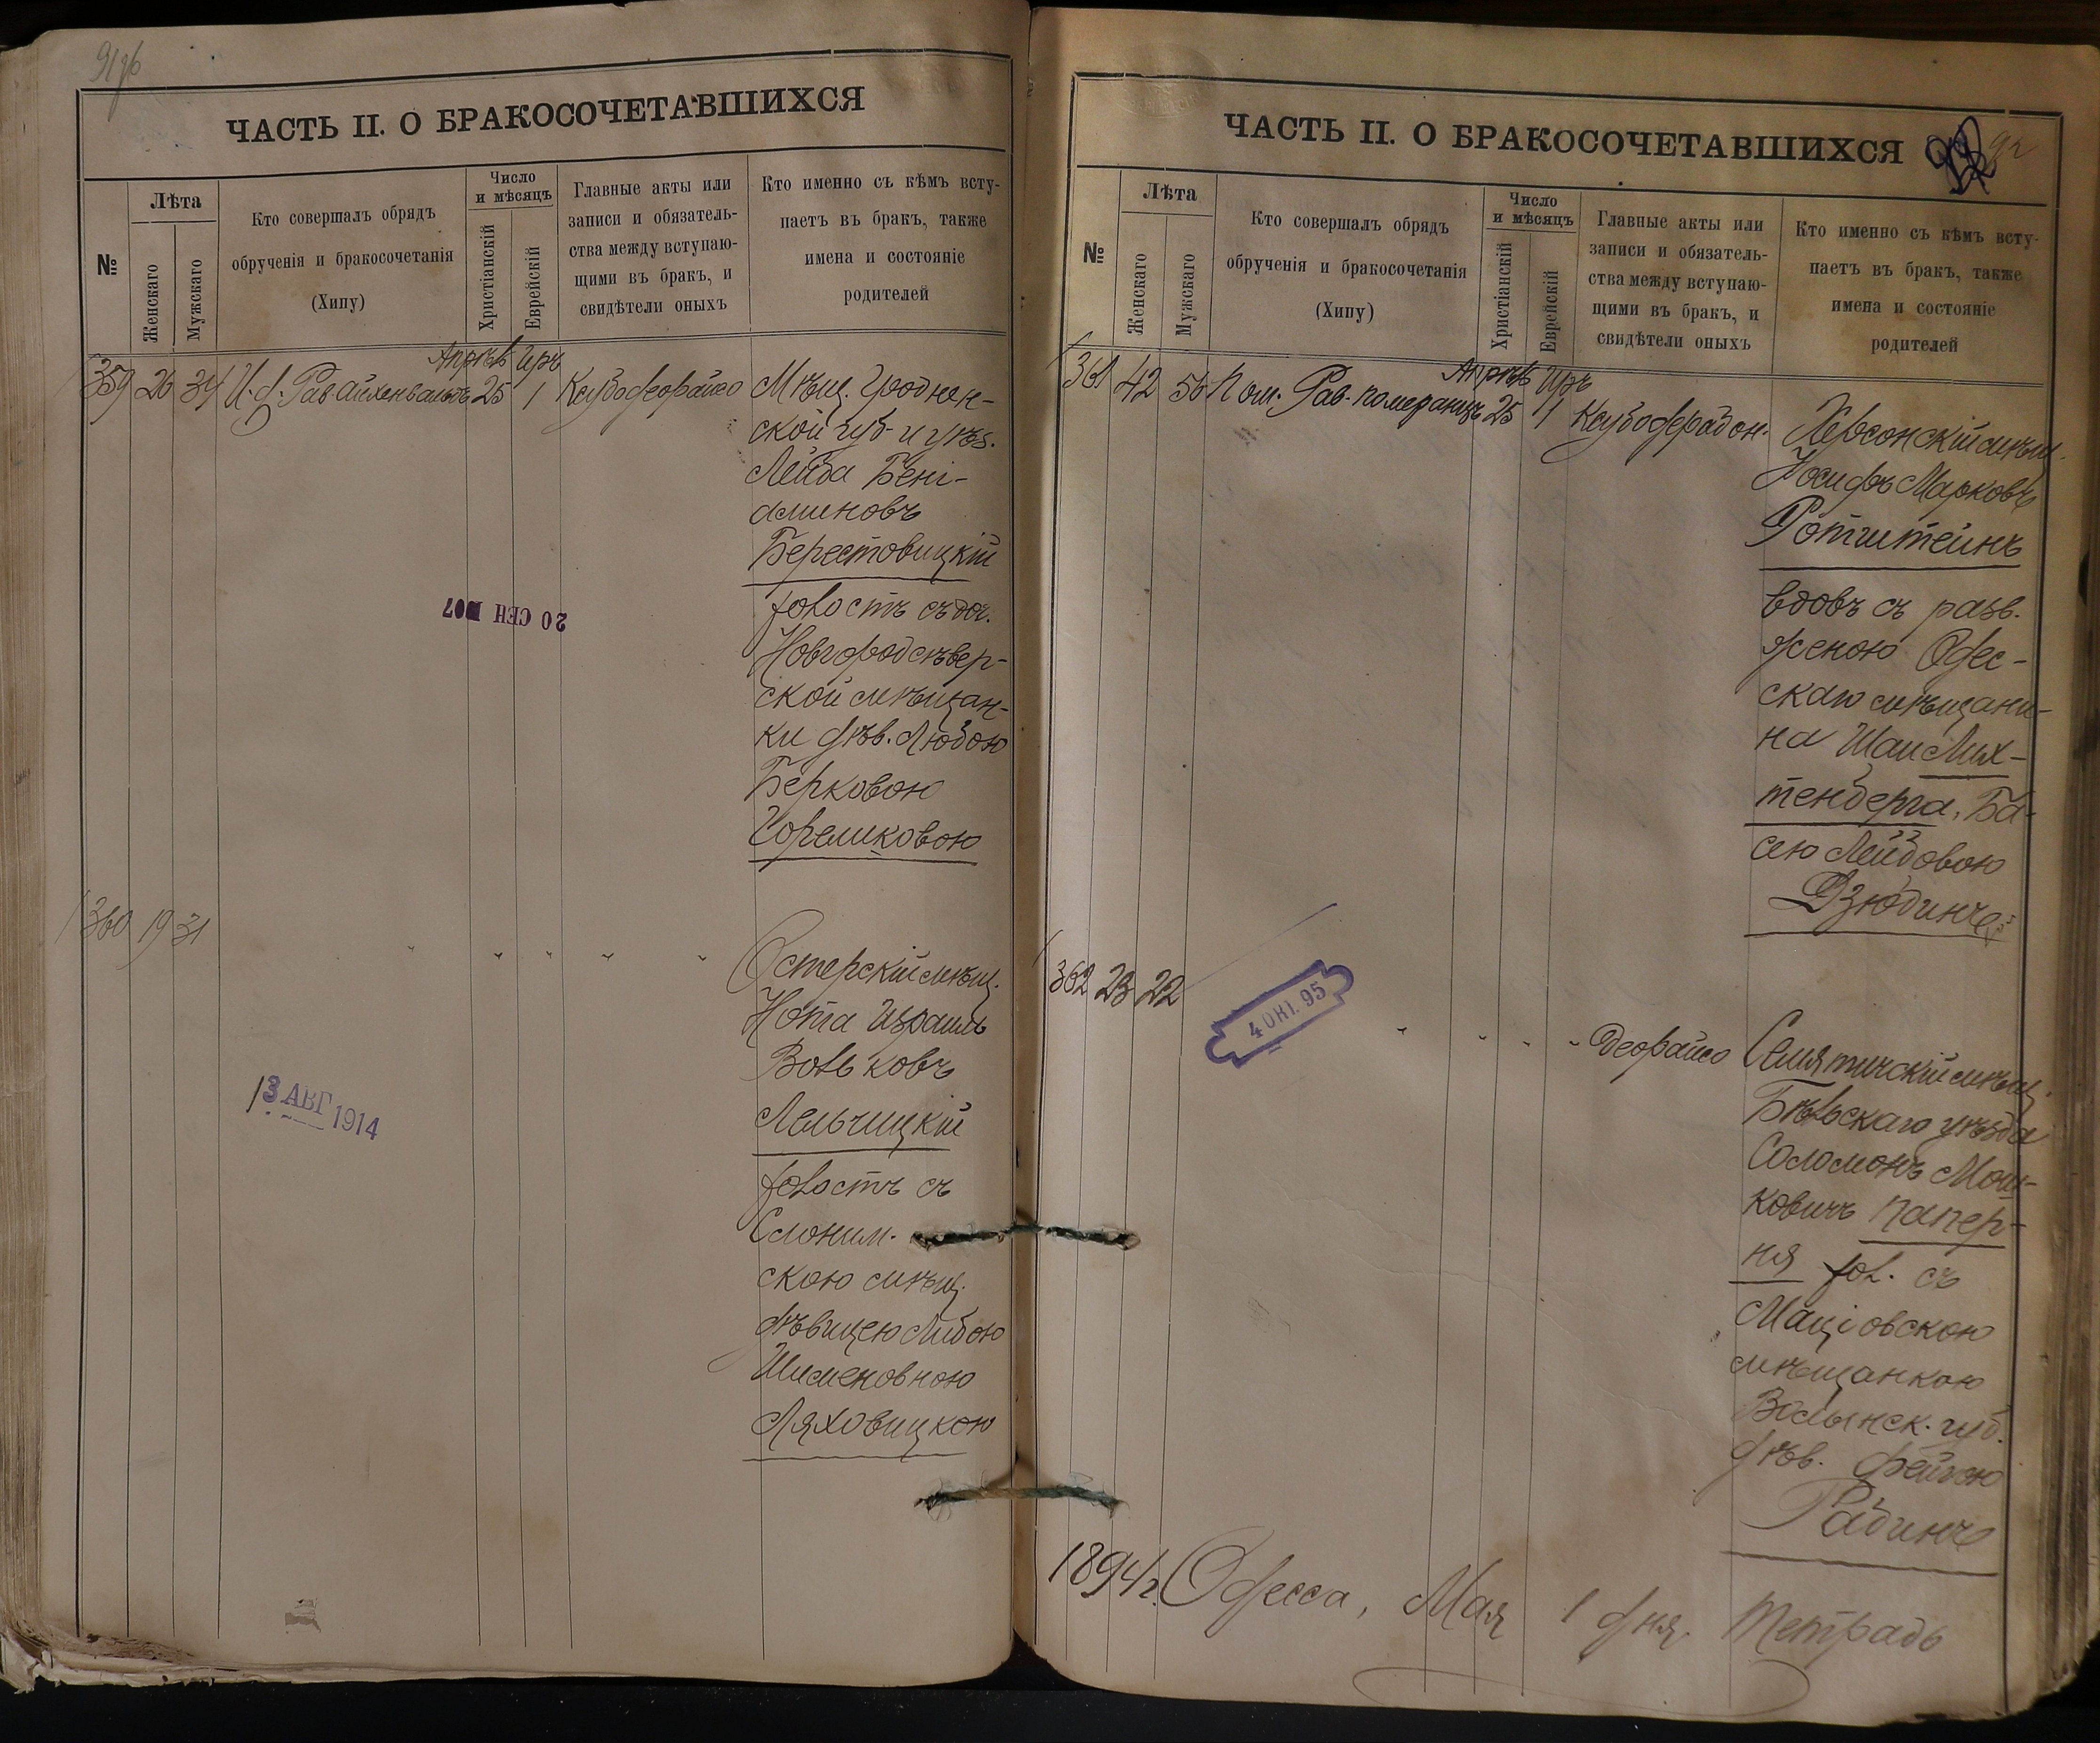 91об
ЧАСТЬ II. О БРАКОСОЧЕТАВШИХСЯ
№
Лѣта
Женскаго
Мужскаго
Кто совершалъ обрядъ
обрученія и бракосочетанія
(Хипу)
Число
и мѣсяцъ
Христіанскій
Еврейскій
Главные акты или
записи и обязатель-
ства между вступаю-
щими въ бракъ, и
свидѣтели оныхъ
Кто именно съ кѣмъ всту-
паетъ въ бракъ, также
имена и состояніе
родителей
Апрѣль Иръ
359 26 34 И. д. Рав. Айхенвальдъ 25 1
Мѣщ. Гроднен-
ской губ. и уѣз.
Лейба Бені-
аминовъ
Берестовицкій
холостъ съ доч.
Новгородсѣвер-
ской мѣщан-
ки дѣв. Любою
Берковою
Гореликовою
20 СЕН 1907
360 19 31
Остерскій мѣщ.
Нота Израиль
Вольковъ
Лельчицкій
холостъ съ
Слоним-
скою мѣщ.
дѣвицею Либою
Шименовною
Ляховицкою
13 АВГ 1914
ЧАСТЬ II. О БРАКОСОЧЕТАВШИХСЯ
92
№
Лѣта
Женскаго
Мужскаго
Кто совершалъ обрядъ
обрученія и бракосочетанія
(Хипу)
Число
и мѣсяцъ
Христіанскій
Еврейскій
Главные акты или
записи и обязатель-
ства между вступаю-
щими въ бракъ, и
свидѣтели оныхъ
Кто именно съ кѣмъ всту-
паетъ въ бракъ, также
имена и состояніе
родителей
Апрѣль Иръ
361 42 56 Пом. Рав. Померанцъ 25 1
Херсонскій мѣщ.
Іосифъ Марковъ
Ротштейнъ
вдовъ съ разв.
женою Одес-
скаго мѣщани-
на Шаи Лих-
тенберга, Ба-
сею Лейбовою
Дзюбинъ
362 23 22
4 ОКТ. 95
Деорайсо
Семятичскій мѣщ.
Бѣльскаго уѣзда
Соломонъ Мош-
ковичъ Папер-
ня хол. съ
Маціовскою
мѣщанкою
Волынск. губ.
дѣв. Фейгою
Рабинъ
1894 г. Одесса, Мая 1 дня. Тетрадь